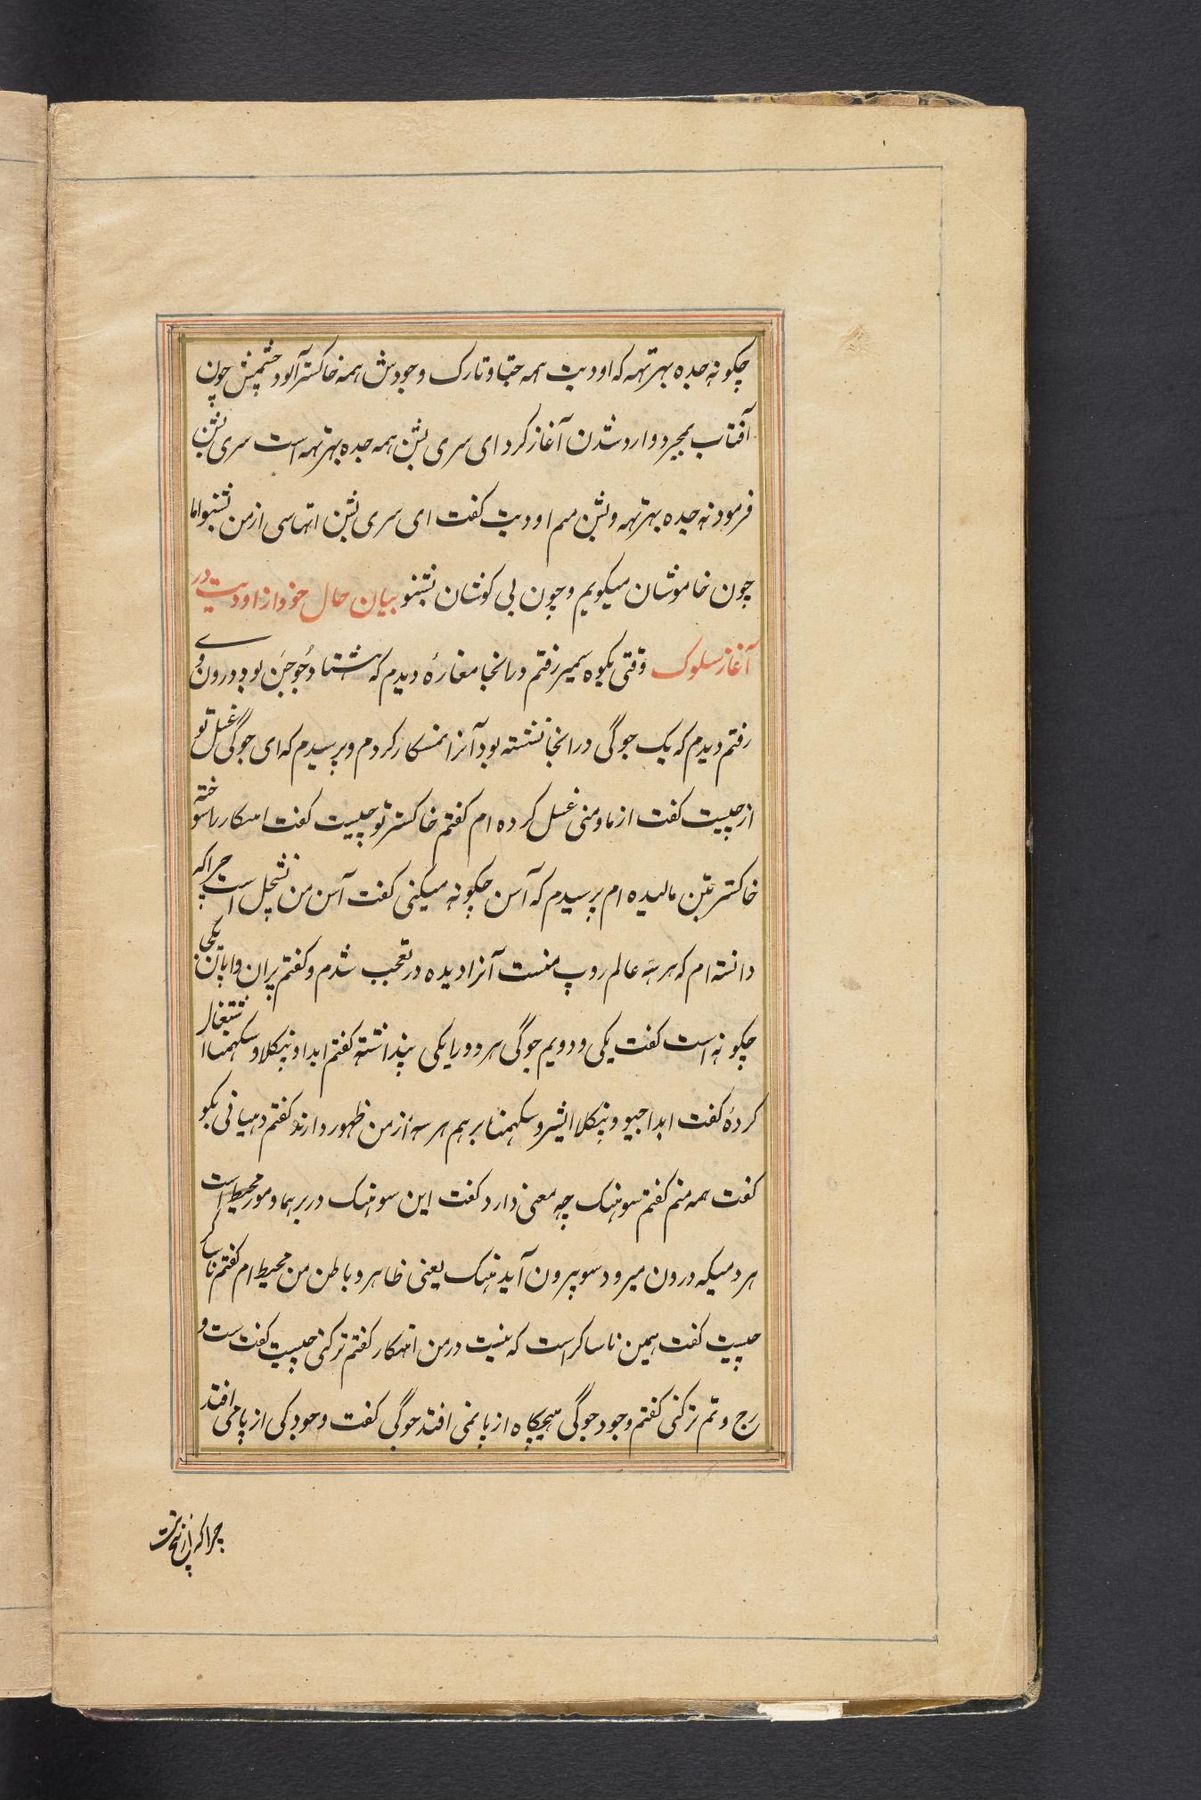 چکونه جده بهرتهه که اودیت همه جتا و تارک وجودش همه خاکستر آلود چشمپش چون
آفتاب بمجرد وارد شدن آغاز کرد ای سری بشن همه جده بهرتهه است سری بشن
فرمود نه جده بهرتهه و بشن هم اودیت کفت ای سری بشن اتهاسی از من بشنو اما
چون خاموشان میکویم و چون بی کوشان بشنو بیان حال خود از اودیت در
آغاز سلوک وقتی بکوه سمیر رفتم در انجا مغارهٔ دیدم که هشتاد جوجن بود درون وی
رفتم دیدم که یک جوگی در انجا نشسته بود آنرا نمسکار کردم و پرسیدم که ای جوگی غسل تو
از چیست کفت از ما و منی غسل کرده ام کفتم خاکستر تو چیست کفت اهنکار را سوخته
خاکستر بتن مالیده ام پرسیدم که آسن چکونه میکنی کفت آسن من نشچل است چرا که
دانسته ام که هر سه عالم روپ منست آنرا دیده در تعجب شدم و کفتم پران و اپان یکی
چکونه است کفت یکی و دویم جوگی هر دو را یکی پنداشته کفتم ایدا و پنکلا و سکهمنا اشتغال
کردهٔ کفت ایدا جیو و پنکلا ایشر و سکهمنا برهم هر سه از من ظهور دارند کفتم دهیانی بکو
کفت همه منم کفتم سوهنک چه معنی دارد کفت این سوهنک در برهما و مور محیط است
هر دمیکه درون میرود سو بیرون آید هنک یعنی ظاهر و باطن من محیط ام کفتم ناساکر
چیست کفت همین ناساکر است که نیست در من اهنکار کفتم ترکنی چیست کفت ست و
رج و تم ترکنی کفتم وجود جوگی هیچکاه از پا نمی افتد جوگی کفت وجود کی از پا می افتد
چرا که پران